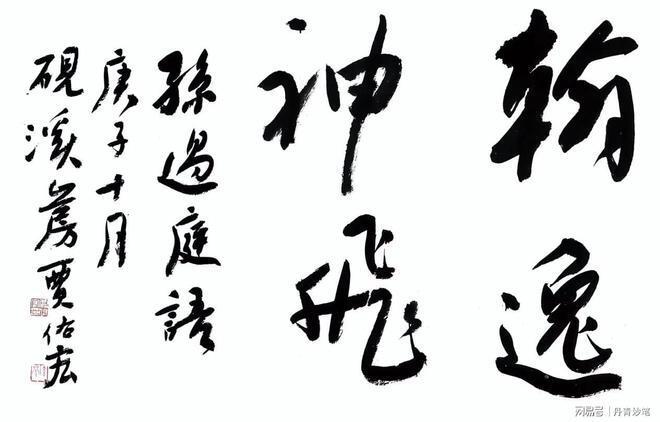 翰逸
神飛
孫過庭語
庚子十月
硯溪 賈佑宏
网易号 | 丹青妙笔